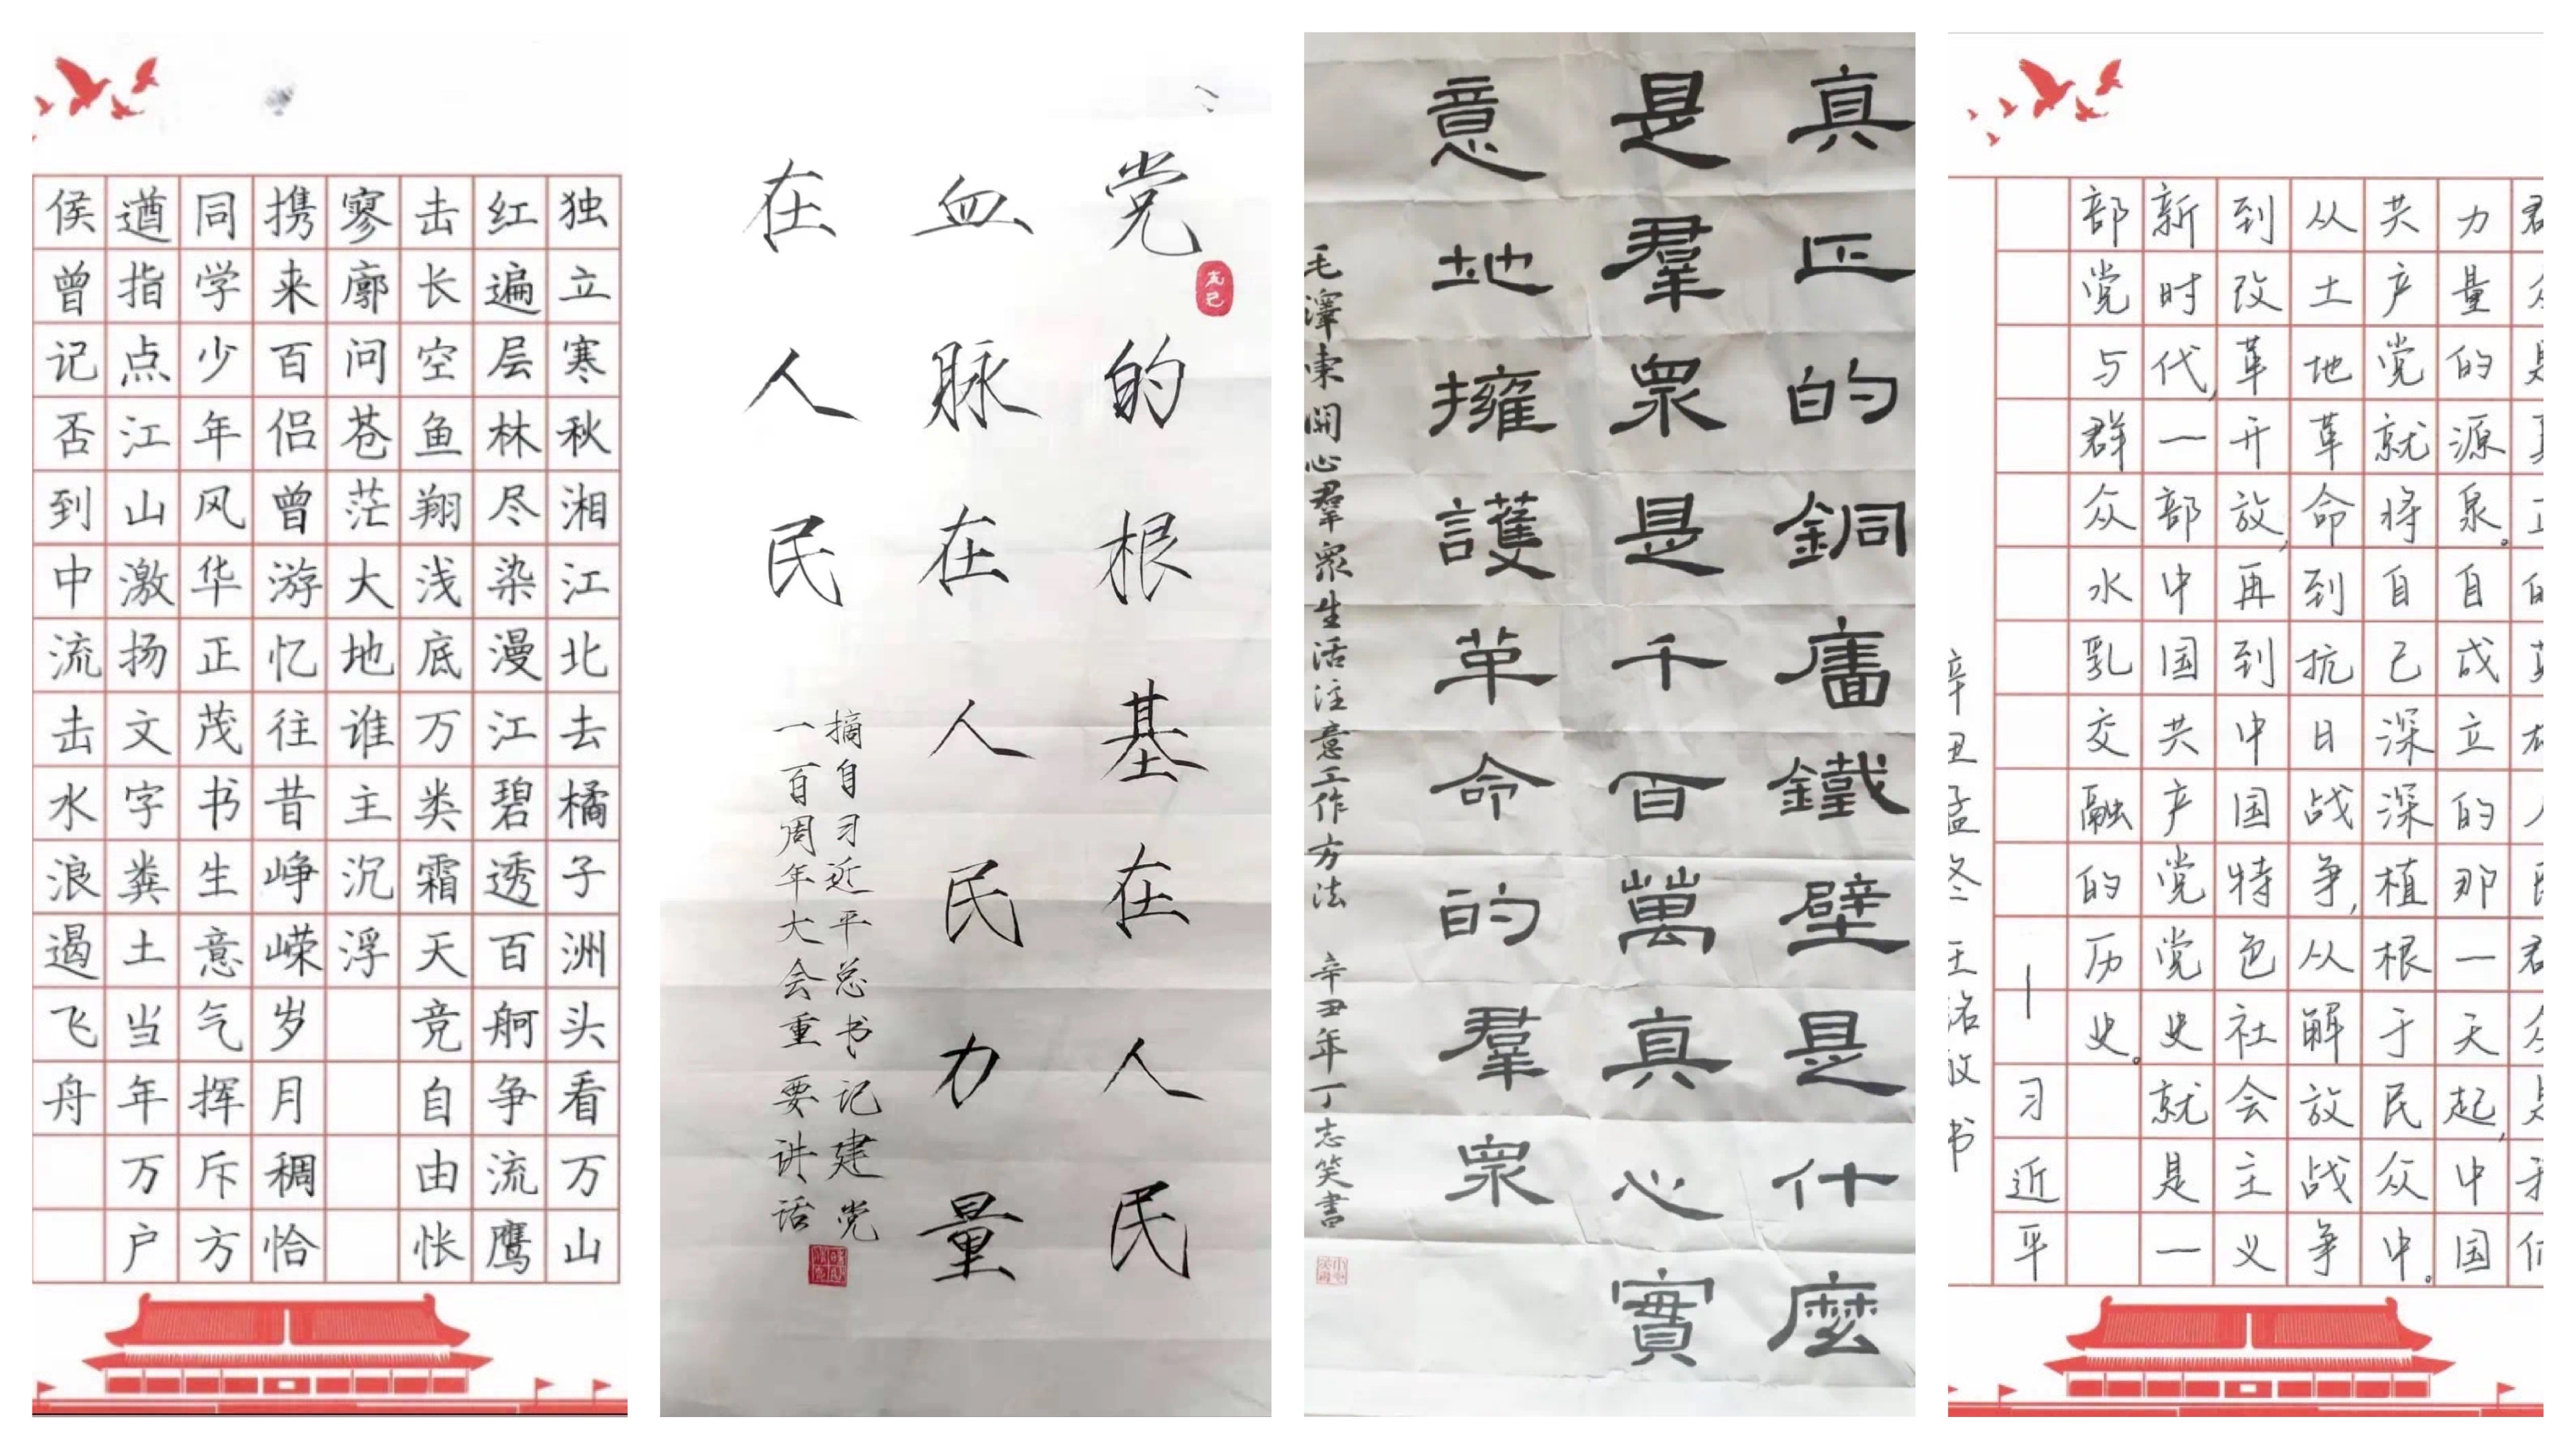 独立寒秋湘江北去橘子洲头看万山
红遍层林尽染漫江碧透百舸争流鹰
击长空鱼翔浅底万类霜天竞自由怅
寥廓问苍茫大地谁主沉浮
携来百侣曾游忆往昔峥嵘岁月稠恰
同学少年风华正茂书生意气挥斥方
遒指点江山激扬文字粪土当年万户
侯曾记否到中流击水浪遏飞舟
党的根基在人民
血脉在人民力量
在人民
摘自习近平总书记建党
一百周年大会重要讲话
真正的銅墻鐵壁是什麼
是羣眾是千百萬真心實
意地擁護革命的羣眾
毛澤東關心羣眾生活注意工作方法 辛丑年丁志笑書
力量的源泉。自成立的那一天起,中国
共产党就将自己深深植根于民众中。
从土地革命到抗日战争,从解放战争
到改革开放,再到中国特色社会主义
新时代,一部中国共产党党史就是一
部党与群众水乳交融的历史。
—习近平
辛丑孟冬 王